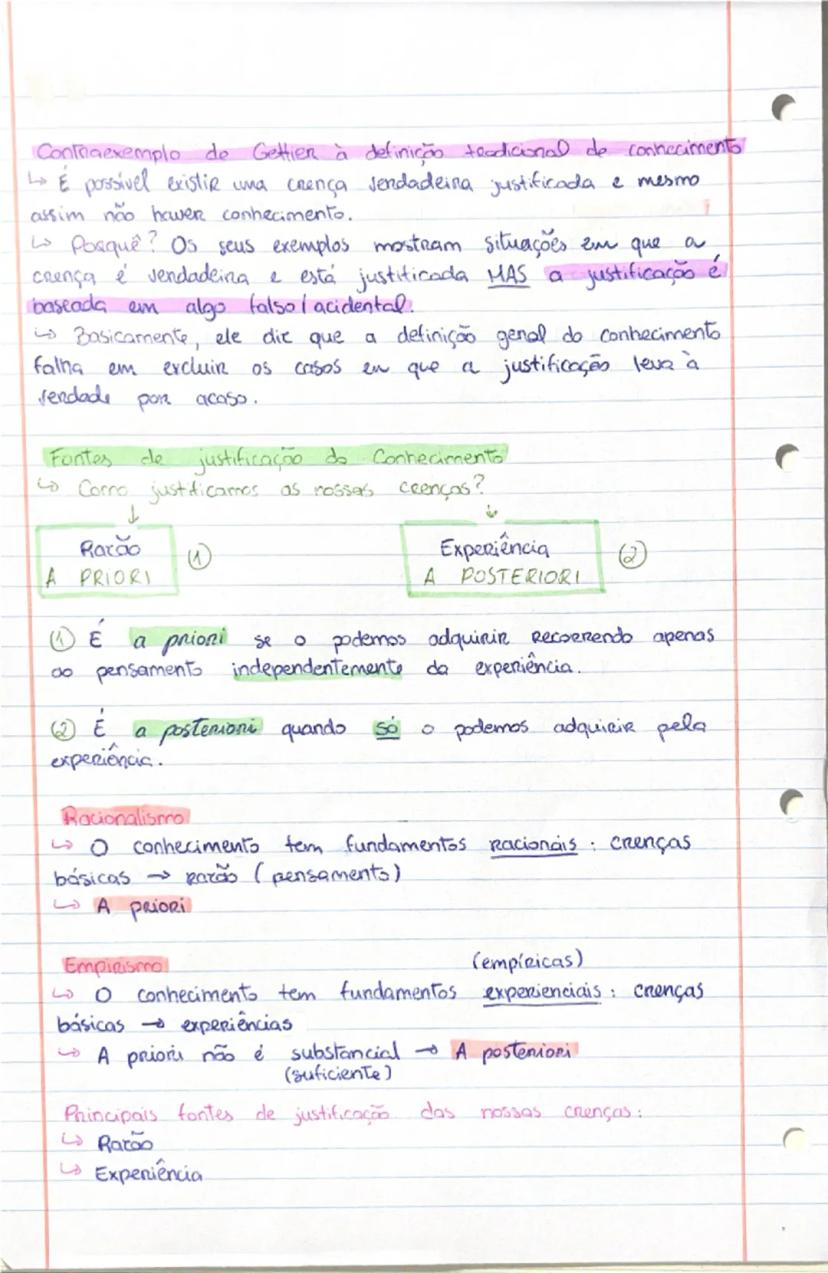 Contraexemplo de Gettier à definição tradicional de conhecimento
↳ É possível existir uma crença verdadeira justificada e mesmo
assim não haver conhecimento.
↳ Porquê? Os seus exemplos mostram situações em que a
crença é verdadeira e está justificada MAS a justificação é
baseada em algo falso/acidental.
↳ Basicamente, ele diz que a definição geral do conhecimento
falha em excluir os casos em que a justificação leva à
verdade por acaso.
Fontes de justificação do Conhecimento
↳ Como justificamos as nossas crenças?
↓ ↓
Razão (1) Experiência (2)
A PRIORI A POSTERIORI
(1) É a priori se o podemos adquirir recorrendo apenas
ao pensamento independentemente da experiência.
(2) É a posteriori quando só o podemos adquirir pela
experiência.
Racionalismo
↳ O conhecimento tem fundamentos racionais: crenças
básicas → razão (pensamento)
↳ A priori
Empirismo (empíricas)
↳ O conhecimento tem fundamentos experienciais: crenças
básicas → experiências
↳ A priori não é substancial → A posteriori
(suficiente)
Principais fontes de justificação das nossas crenças:
↳ Razão
↳ Experiência